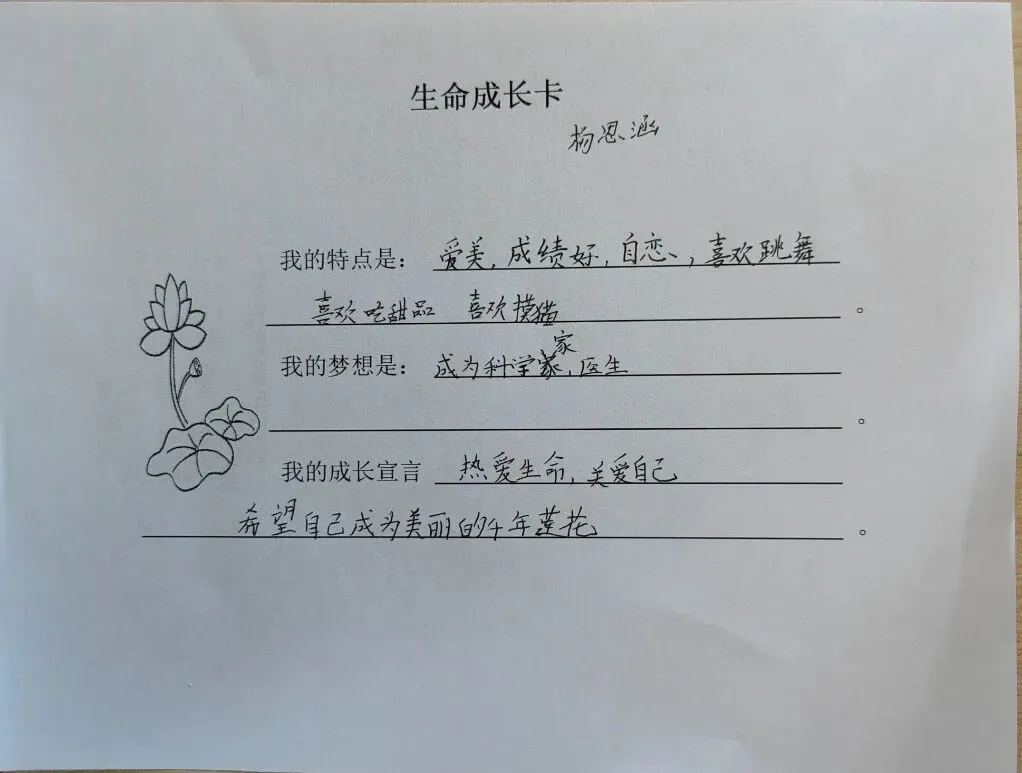 生命成长卡
杨恩涵
我的特点是：爱美，成绩好，自恋、，喜欢跳舞
喜欢吃甜品 喜欢摸猫。
我的梦想是：成为科学家，医生
。
我的成长宣言 热爱生命，关爱自己
希望自己成为美丽的千年莲花。